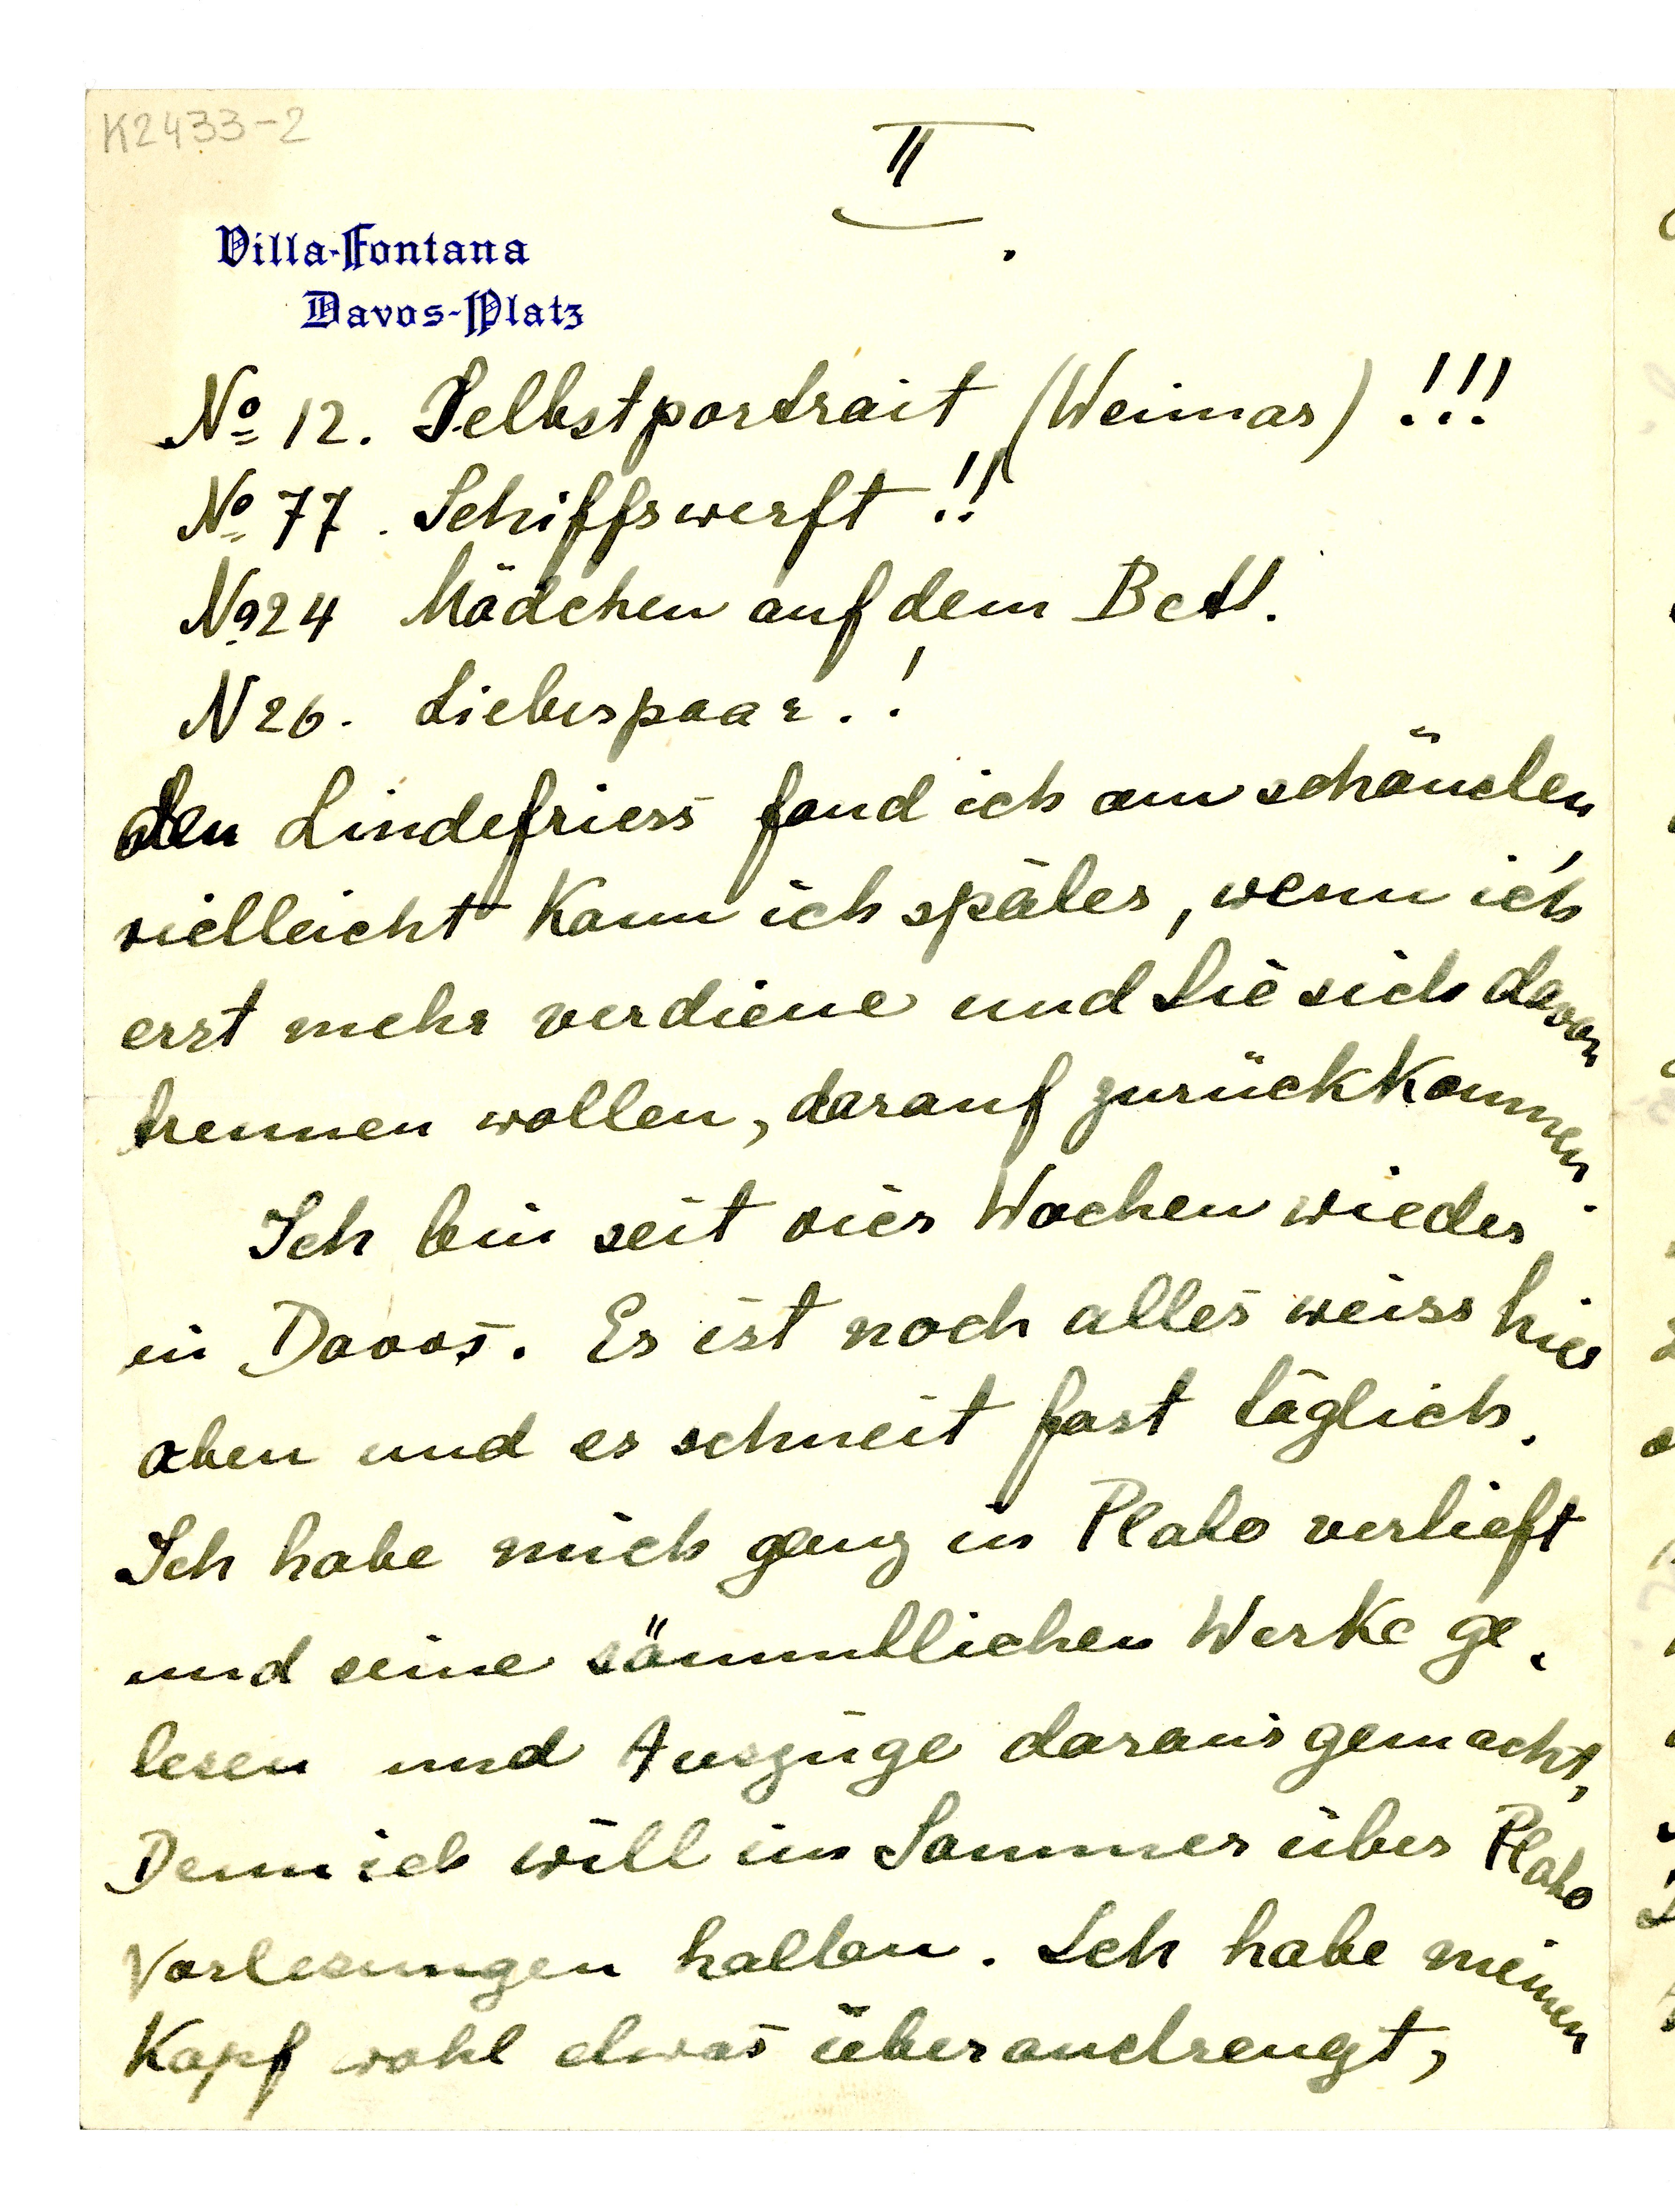 K2433-2
II
.
Villa-Fontana
Davos-Platz
No 12. Selbstportrait (Weimar) !!!
No 77. Schiffswerft !!
No 24 Mädchen auf dem Bett.
N 26. Liebespaar. !
den Lindefriess fand ich am schönsten,
vielleicht kann ich später, wenn ich
erst mehr verdiene und Sie sich davon
trennen wollen, darauf zurückkommen.
Ich bin seit vier Wochen wieder
in Davos. Es ist noch alles weiss hier
oben und es schneit fast täglich.
Ich habe mich ganz in Plato vertieft
und seine sämmtlichen Werke ge-
lesen und Auszüge daraus gemacht,
Denn ich will im Sommer über Plato
Vorlesungen halten. Ich habe meinen
Kopf wohl etwas überanstrengt,